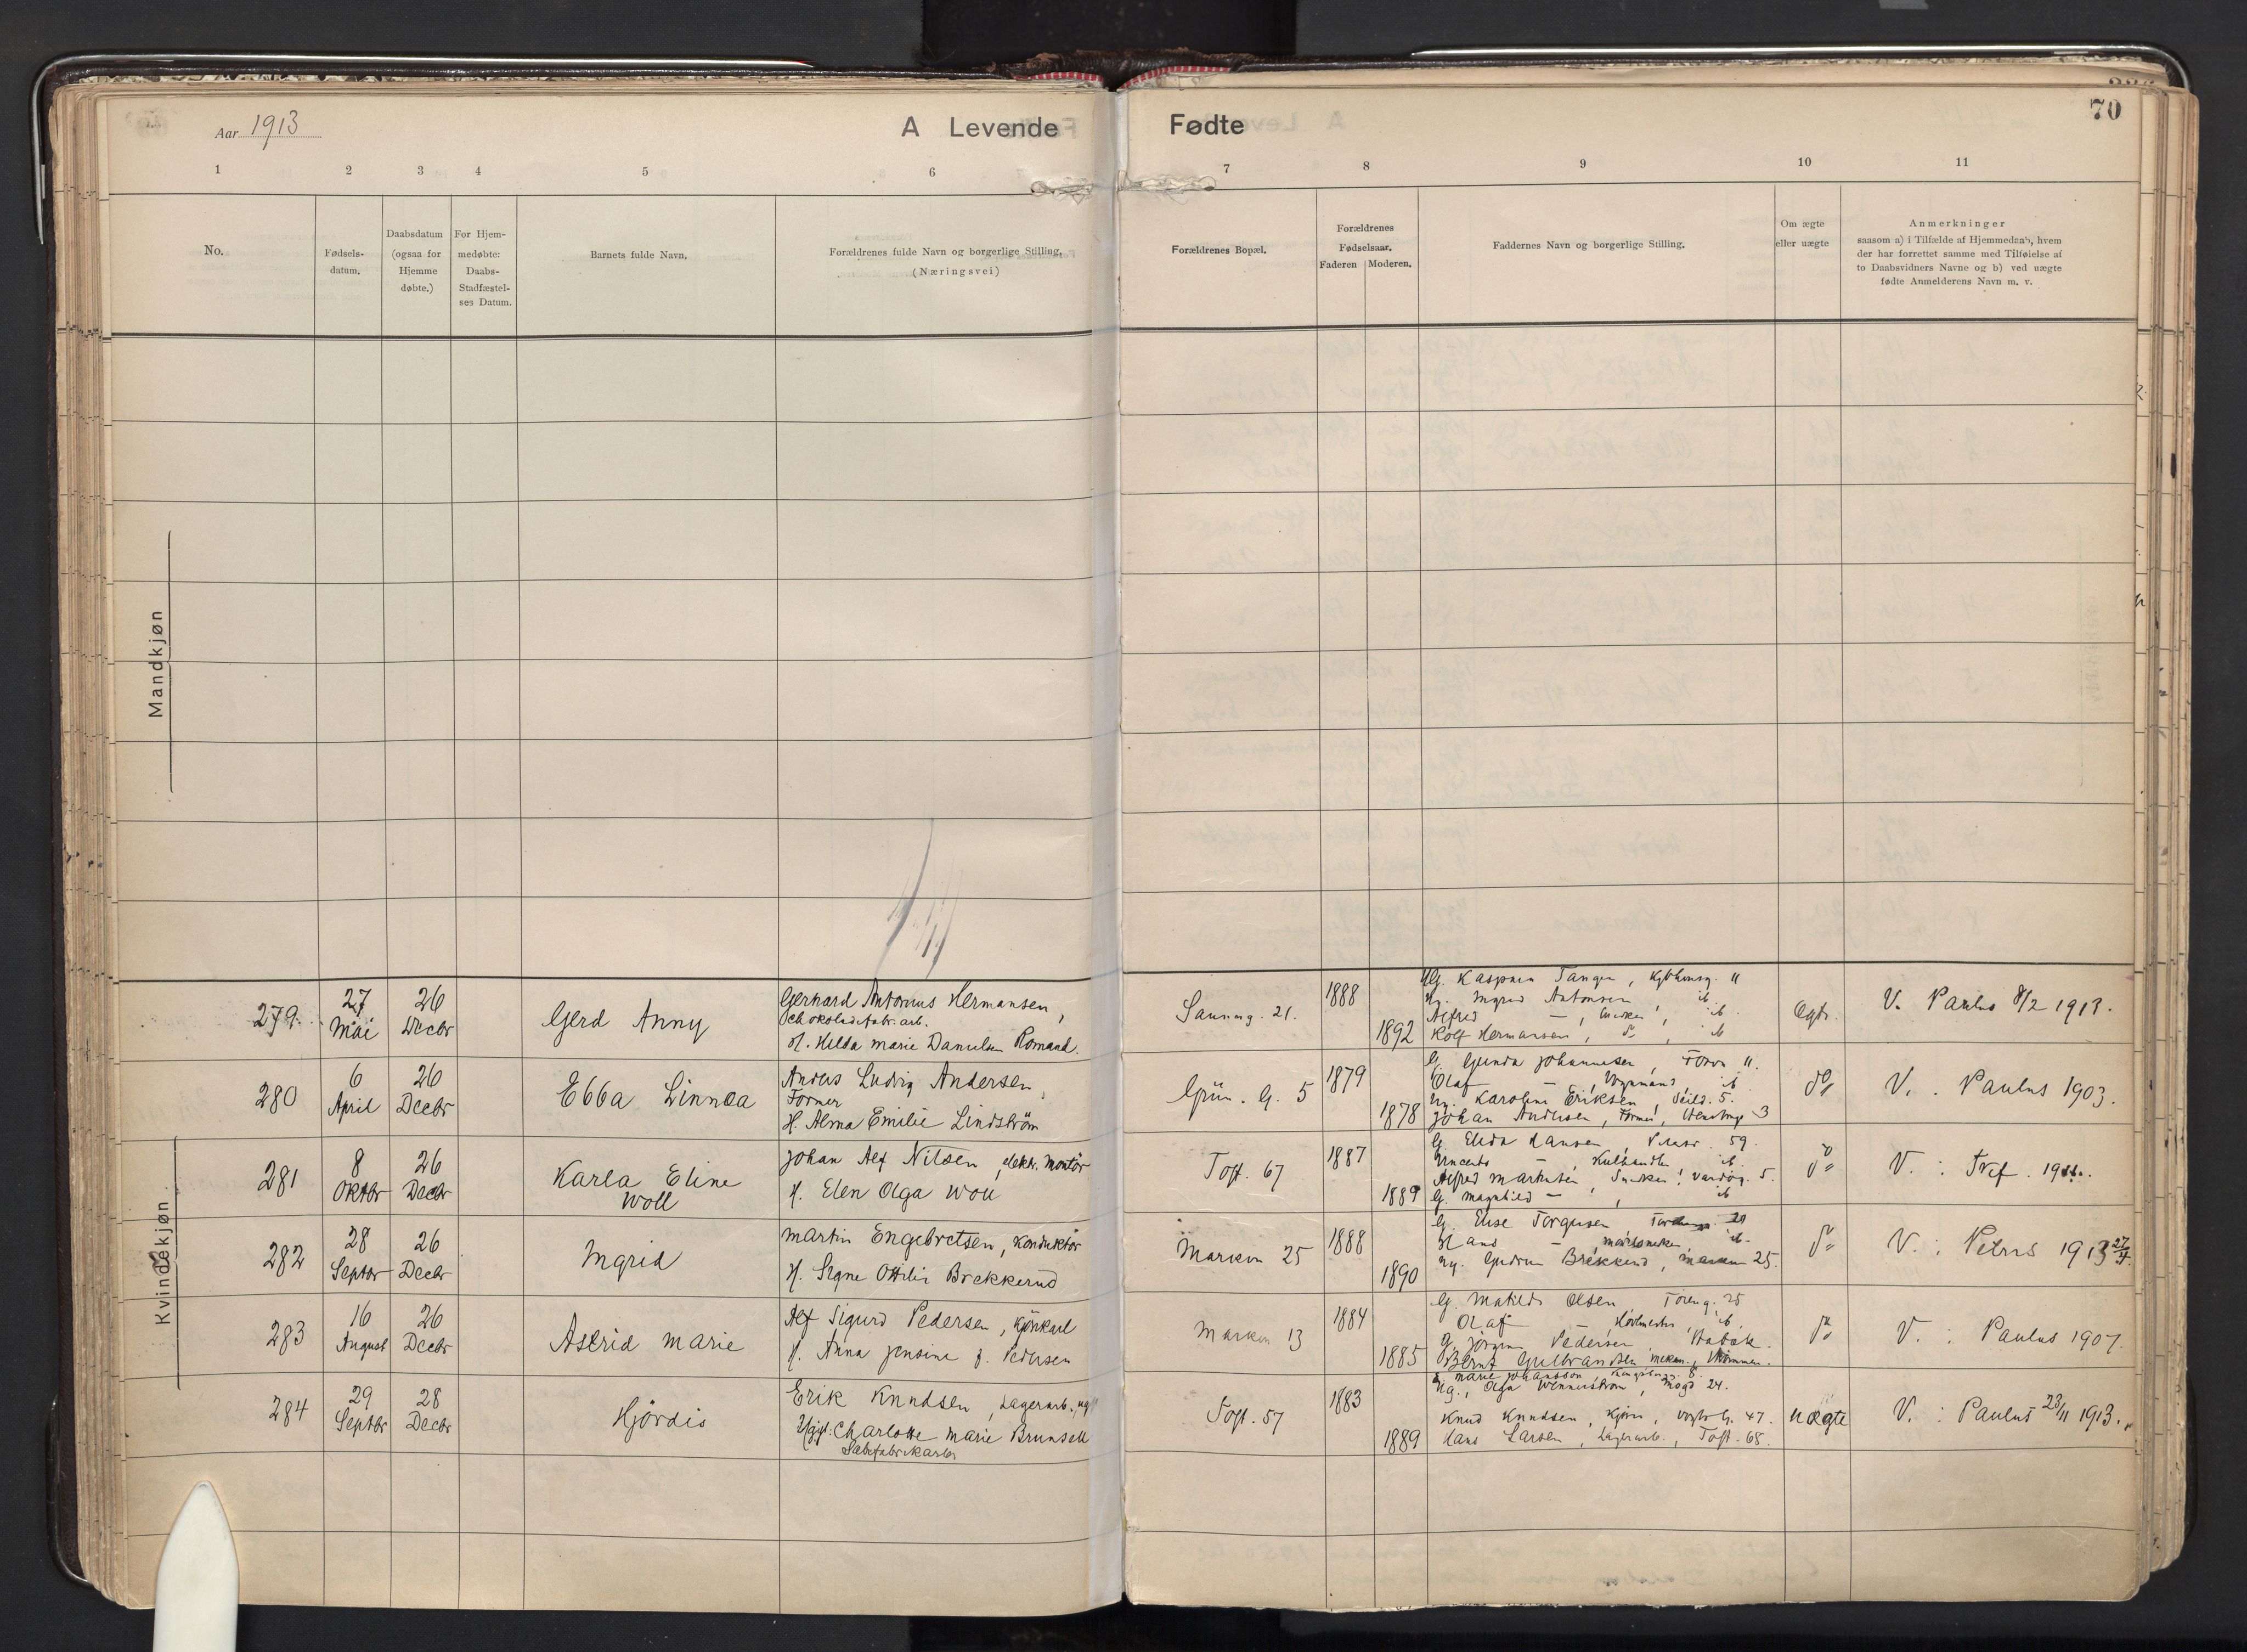 Aar 1913
A Levende Fødte
70
1 2 3 4 5 6 7 8 9 10 11
No.
Fødsels-
datum.
Daabsdatum
(ogsaa for
Hjemme
døbte.)
For Hjem-
medøbte:
Daabs-
Stadfæstel-
ses Datum.
Barnets fulde Navn.
Forældrenes fulde Navn og borgerlige Stilling.
(Næringsvei)
Forældrenes Bopæl.
Forældrenes
Fødselsaar.
Faderen Moderen.
Faddernes Navn og borgerlige Stilling.
Om ægte
eller uægte
Anmerkninger
saasom a) i Tilfælde af Hjemmedaab, hvem
der har forrettet samme med Tilføielse af
to Daabsvidners Navne og b) ved uægte
fødte Anmelderens Navn m. v.
Mandkjøn
Kvindekjøn
279.
27
Mai
26
Decbr
Gerd Anny
Gerhard Antonius Hermansen,
Schokoladefabr.arb.
H. Hilda Marie Danielsen Romand.
21.
1888
1892
Tangen,
Ingrid Antonsen
Alfred
Rolf Hermansen,
V. Paulus 8/2 1913.
280
6
April
26
Decbr
Ebba Linnea
Anders Ludvig Andersen,
Former
H. Alma Emilie Lindström
Grün. G. 5
1879
1878
G. Gunda Johannesen,
Olaf
Karoline Eriksen, 5.
Johan Andersen, Former, 3
do
V. : Paulus 1903.
281
8
Oktbr
26
Decbr
Karla Eline
Woll
Johan Alf Nilsen, elektr. Montör
H. Elen Olga Woll
Toft. 67
1887
1889
G. Elida Hansen, 59.
Kulhandler
Alfred Martinsen, 5.
G. Magnhild
do
V. : Tref.
282
28
Septbr
26
Decbr
Ingrid
Martin Engebretsen, Konduktör
H. Signe Ottilie Brekkerud
Marken 25
1888
1890
G. Else Torgersen,
Hans
Gudrun Brekkerud, Marken 25.
do
V. : Petrus 1913 27/4.
283
16
August
26
Decbr
Astrid Marie
Alf Sigurd Pedersen, Kjörekarl
H. Anna Jensine f. Pedersen
Marken 13
1884
1885
G. Matilde Olsen, 25
Olaf
G. Jörgen Pedersen, Stabæk.
Bernt Gulbrandsen
do
V. : Paulus 1907.
284
29
Septbr
28
Decbr
Hjördis
Erik Knudsen, Lagerarb., ug
Ugift: Charlotte Marie Brunsell
Sæbefabrikarb.
Toft. 57
1883
1889
Marie Johansson
Ug., Olga Wennerström, 24.
Knud Knudsen, 47.
Hans Larsen, Lagerarb., Toft. 68.
uægte
V. : Paulus 23/11 1913.